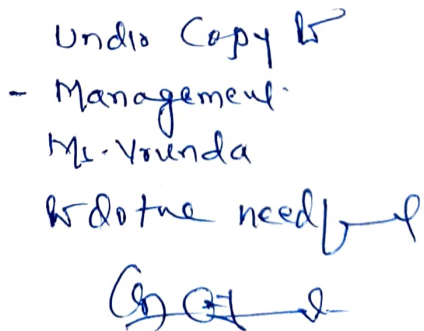 Undio Copy to
- Management.
Ms. Vrunda
to do the needful